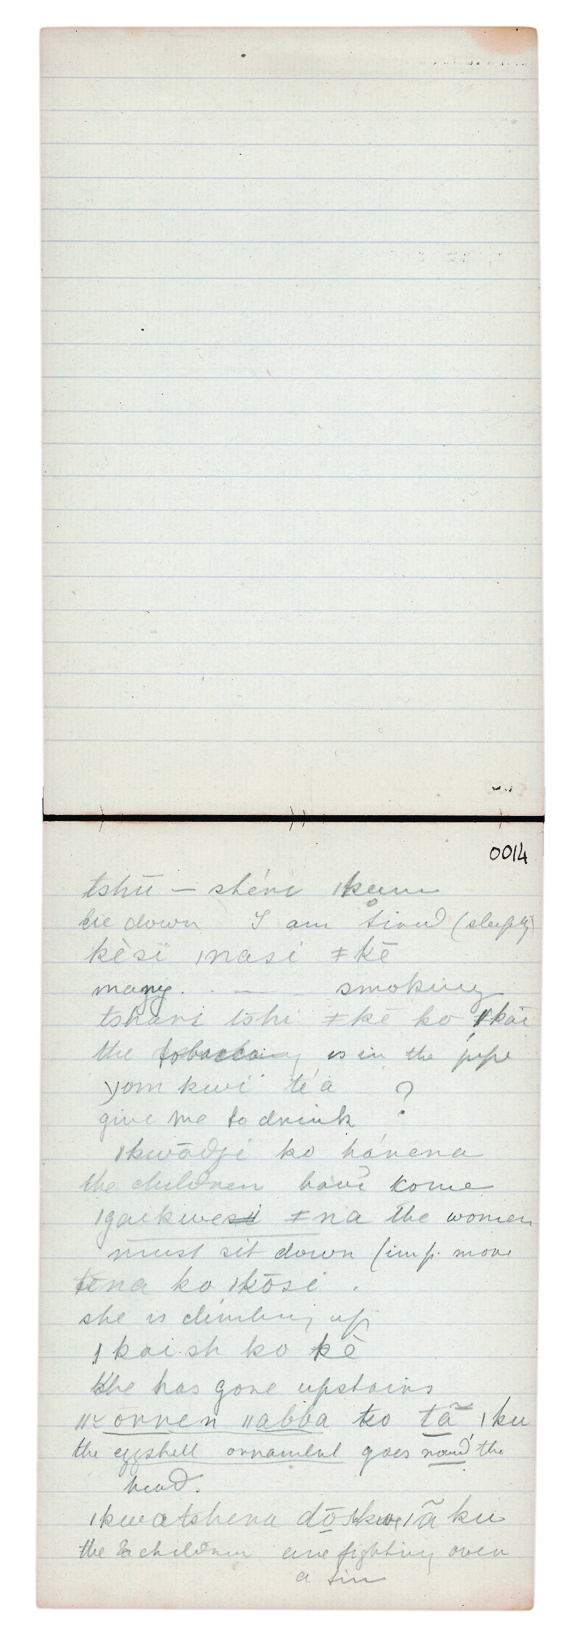 0014
tshū — sténi ǀkum
lie down I am tired (sleepy)
kèsi ǀnasi ǂkē
many. — smoking
tshani tshi ǂkē ko ǂkai
the tobacco is in the pipe
yom kwi té'a ?
give me to drink
ǀkwādji ko hánena
the children have kome
ǀgaikwe ǂna the women
must sit down (imp. more
tēna ko ǀkōsi .
she is climbing up
ǀkaish ko kē
She has gone upstairs
ornen ǁabba ko tã ǀku
the eggshell ornament goes round the
head.
ǀkwatshena dō ǀã ku
the 2 children are fighting over
a tin